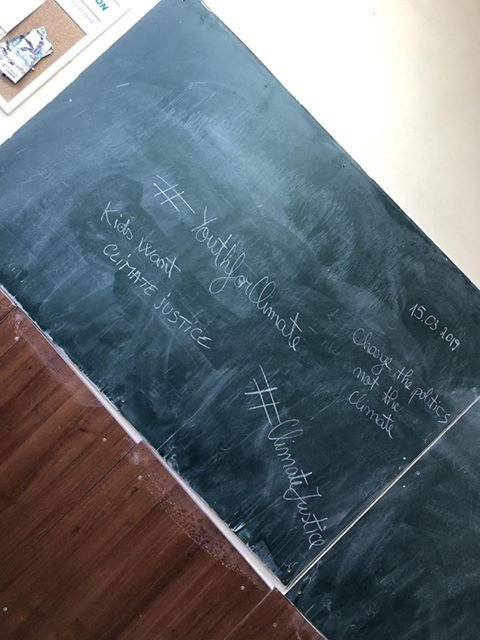 ON
#YouthforClimate
15.03.2019
Kids want
CLIMATE JUSTICE
Change the politics
not the
climate
#ClimateJustice